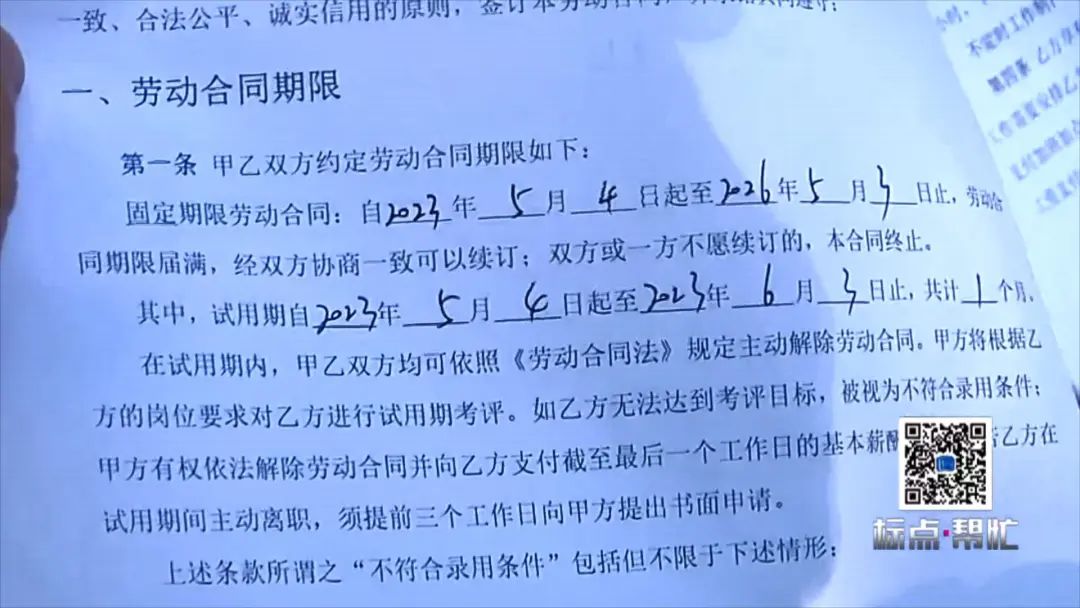 一致、合法公平、诚实信用的原则，签订本劳动合同，
一、劳动合同期限
第一条 甲乙双方约定劳动合同期限如下：
固定期限劳动合同：自2023年5月4日起至2026年5月3日止，劳动合
同期限届满，经双方协商一致可以续订；双方或一方不愿续订的，本合同终止。
其中，试用期自2023年5月4日起至2023年6月3日止，共计1个月。
在试用期内，甲乙双方均可依照《劳动合同法》规定主动解除劳动合同。甲方将根据乙
方的岗位要求对乙方进行试用期考评。如乙方无法达到考评目标，被视为不符合录用条件；
甲方有权依法解除劳动合同并向乙方支付截至最后一个工作日的基本薪 乙方在
试用期间主动离职，须提前三个工作日向甲方提出书面申请。
上述条款所谓之“不符合录用条件”包括但不限于下述情形：
不定时工作制
第四条 乙方享
标点·帮忙